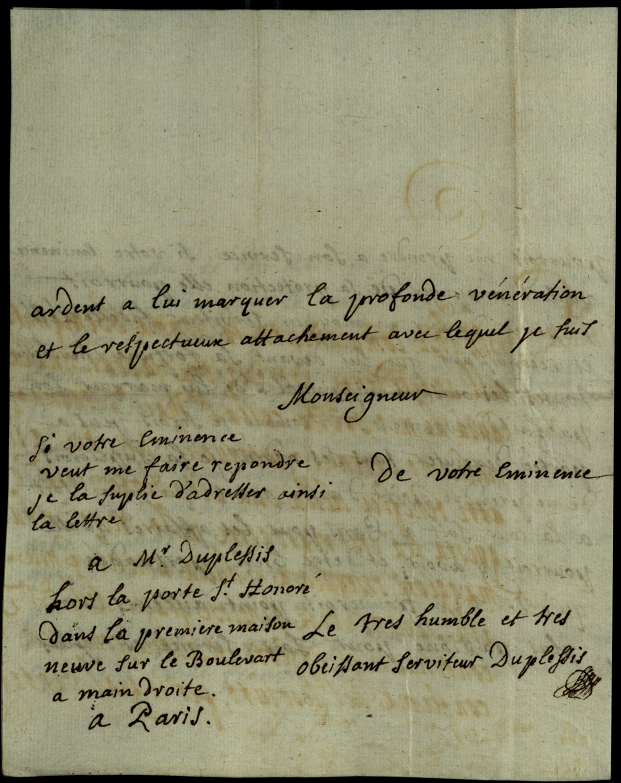 ardent a lui marquer la profonde vénération
et le respectueux attachement avec lequel je suis
Monseigneur
Si votre Eminence
veut me faire repondre
je la suplie d'adresser ainsi
la lettre
a Mr. Duplessis
hors la porte St. Honoré
dans la premiere maison
neuve sur le Boulevart
a main droite.
a Paris.
De votre Eminence
Le tres humble et tres
obeissant serviteur Duplessis